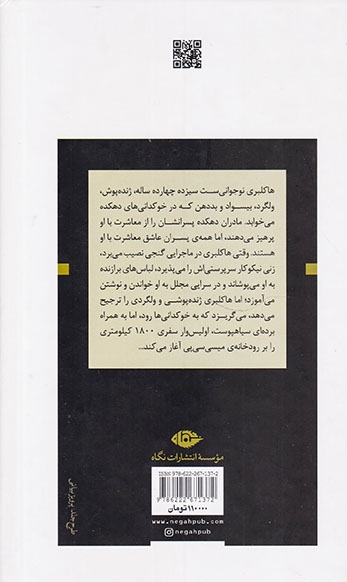 هاکلبری نوجوانی‌ست سیزده چهارده ساله، ژنده‌پوش،
ولگرد، بیسواد و بددهن که در خوکدانی‌های دهکده
می‌خوابد. مادران دهکده پسرانشان را از معاشرت با او
پرهیز می‌دهند، اما همه‌ی پسران عاشق معاشرت با او
هستند. وقتی هاکلبری در ماجرایی گنجی نصیب می‌برد،
زنی نیکوکار سرپرستی‌اش را می‌پذیرد، لباس‌های برازنده
به او می‌پوشاند و در سرایی مجلل به او خواندن و نوشتن
می‌آموزد؛ اما هاکلبری ژنده‌پوشی و ولگردی را ترجیح
می‌دهد، می‌گریزد که به خوکدانی‌ها رود، اما به همراه
برده‌ای سیاهپوست، اولیس‌وار سفری ۱۸۰۰ کیلومتری
را بر رودخانه‌ی میسی‌سی‌پی آغاز می‌کند...
نگاه
مؤسسهٔ انتشارات نگاه
ISBN: 978-622-267-137-2
9786222671372
۱۱۰۰۰۰ تومان
www.negahpub.com
negahpub
طرح جلد: پرویز بیانی